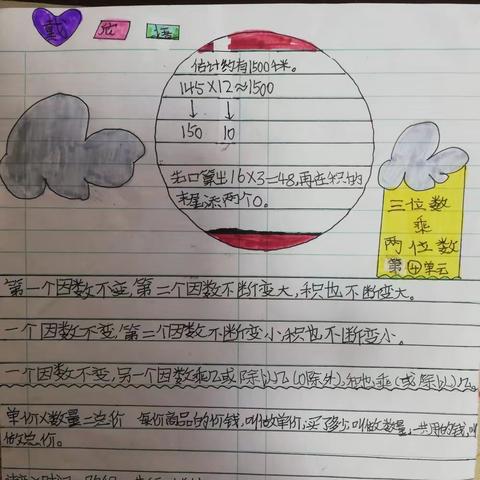 戴 依 语
估计约有1500千米。
145×12≈1500
↓ ↓
150 10
出口算出16×3=48,再在积的
末尾添两个0。
三位数
乘
两位数
第④单元
第一个因数不变,第二个因数不断变大,积也不断变大。
一个因数不变,第二个因数不断变小,积也不断变小。
一个因数不变,另一个因数乘几或除以几(0除外),积也乘(或除以)几。
单价×数量=总价 每份商品的价钱,叫做单价,买了多少,叫做数量,一共用的钱,叫
做总价。